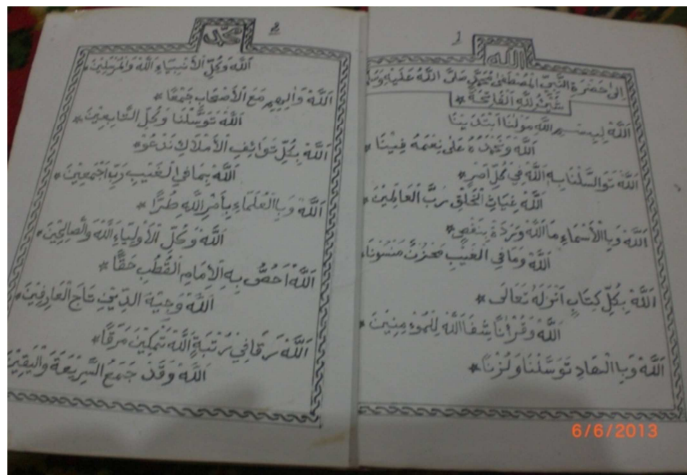 ١
الله
إِلَى حَضْرَةِ النَّبِيِّ الْمُصْطَفَى مُحَمَّدٍ صَلَّى اللهُ عَلَيْهِ وَسَلَّمَ
لِلّهِ الْفَاتِحَةْ *
اَللهْ لِبِسْمِ اللهْ مَوْلَنَا ابْتَدَيْنَا
اَللهْ وَنَحْمَدُهُ عَلَى نِعَمْهُ فِيْنَا *
اَللهْ تَوَالسَّلْنَا بِهِ اَللهْ فِي كُلِّ اَمْرٍ *
اَللهْ غِيَاثِ الْخَلْقِ رَبِّ الْعَالَمِيْنَ *
اَللهْ وَبِا الْأَسْمَاءِ مَا اَللهْ وَرَدَةْ بِنَصٍّ *
اَللهْ وَمَا فِي الْغَيْبِ مَخْزُنً مَنْسُوْنَا
اَللهْ بِكُلِّ كِتَابٍ اَنْزَلَهُ تَعَالَى *
اَللهْ وَقُرْاٰنًا شِفَا اَللهْ لِلْمُوءْمِنِيْنَ *
اَللهْ وَبِا الْهَادِ تَوَسَّلْنَا وَلُزْنَا *
٢
محمد
اَللهْ وَكُلِّ الْأَنْبِيَاءِ اَللهْ وَالْمُرْسَلِيْنَ
اَللهْ وَاٰلِهِمِ مَعَ الْأَصْحَابِ جَمْعًا *
اَللهْ تَوَسَّلْنَا وَكُلِّ التَّابِعِيْنَ *
اَللهْ بِكُلِّ تَوَائِفِ الْأَمْلَاكِ نَدْعُو *
اَللهْ بِمَا فِي الْغَيْبِ رَبِّ اَجْمَعِيْنَ *
اَللهْ وَبِا الْعُلَمَاءِ بِأَمْرِ اللهِ طُرًّا *
اَللهْ وَكُلِّ الْأَوْلِيَاءِ اَللهْ وَالصَّالِحِيْنَ
اَللهْ اَخُصُّ بِهِ الْاِمَامِ الْقُطْبِ حَقًّا *
اَللهْ وَجِيَةِ الدِّيْنِ تَاجِ الْعَارِفِيْنَ *
اَللهْ رَقَا فِي رُتْبَةٍ اَللهْ تَمْكِيْنِ مَرَقًا *
اَللهْ وَقَدْ جَمَعَ الشَّرِيْعَةَ وَالْيَقِيْنَ
6/6/2013